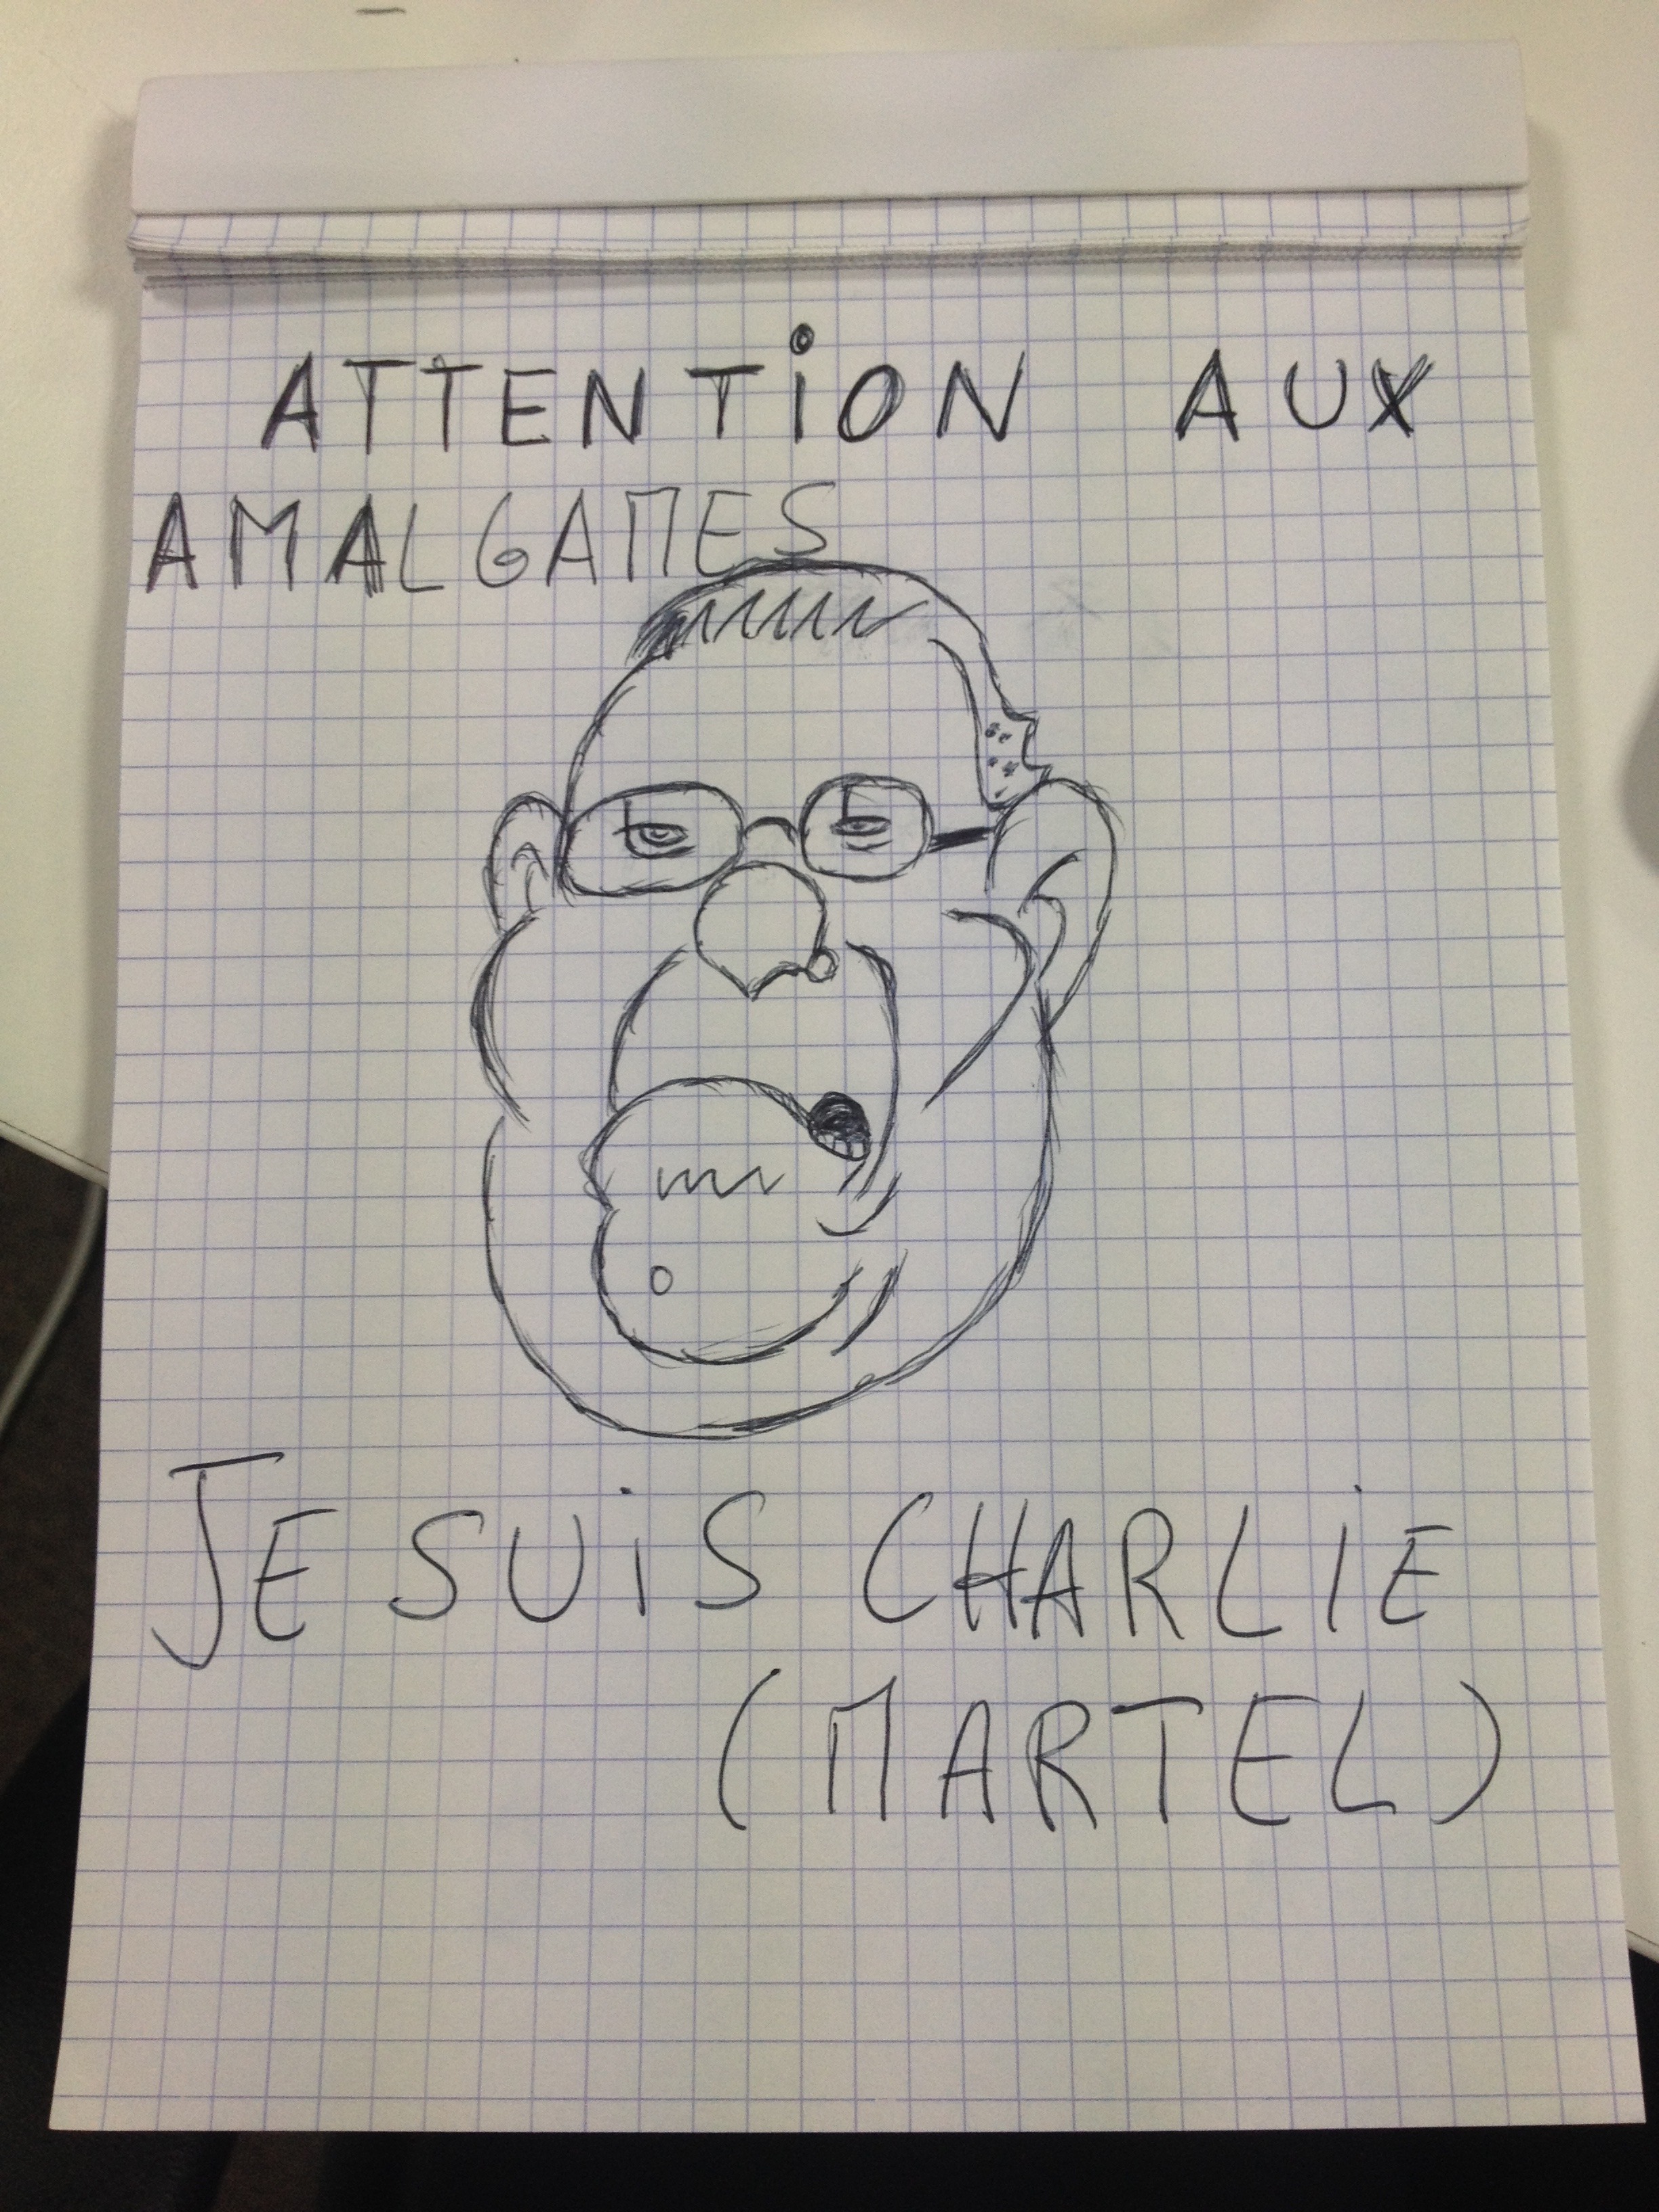 ATTENTION AUX
AMALGAMES
JE SUIS CHARLIE
(MARTEL)